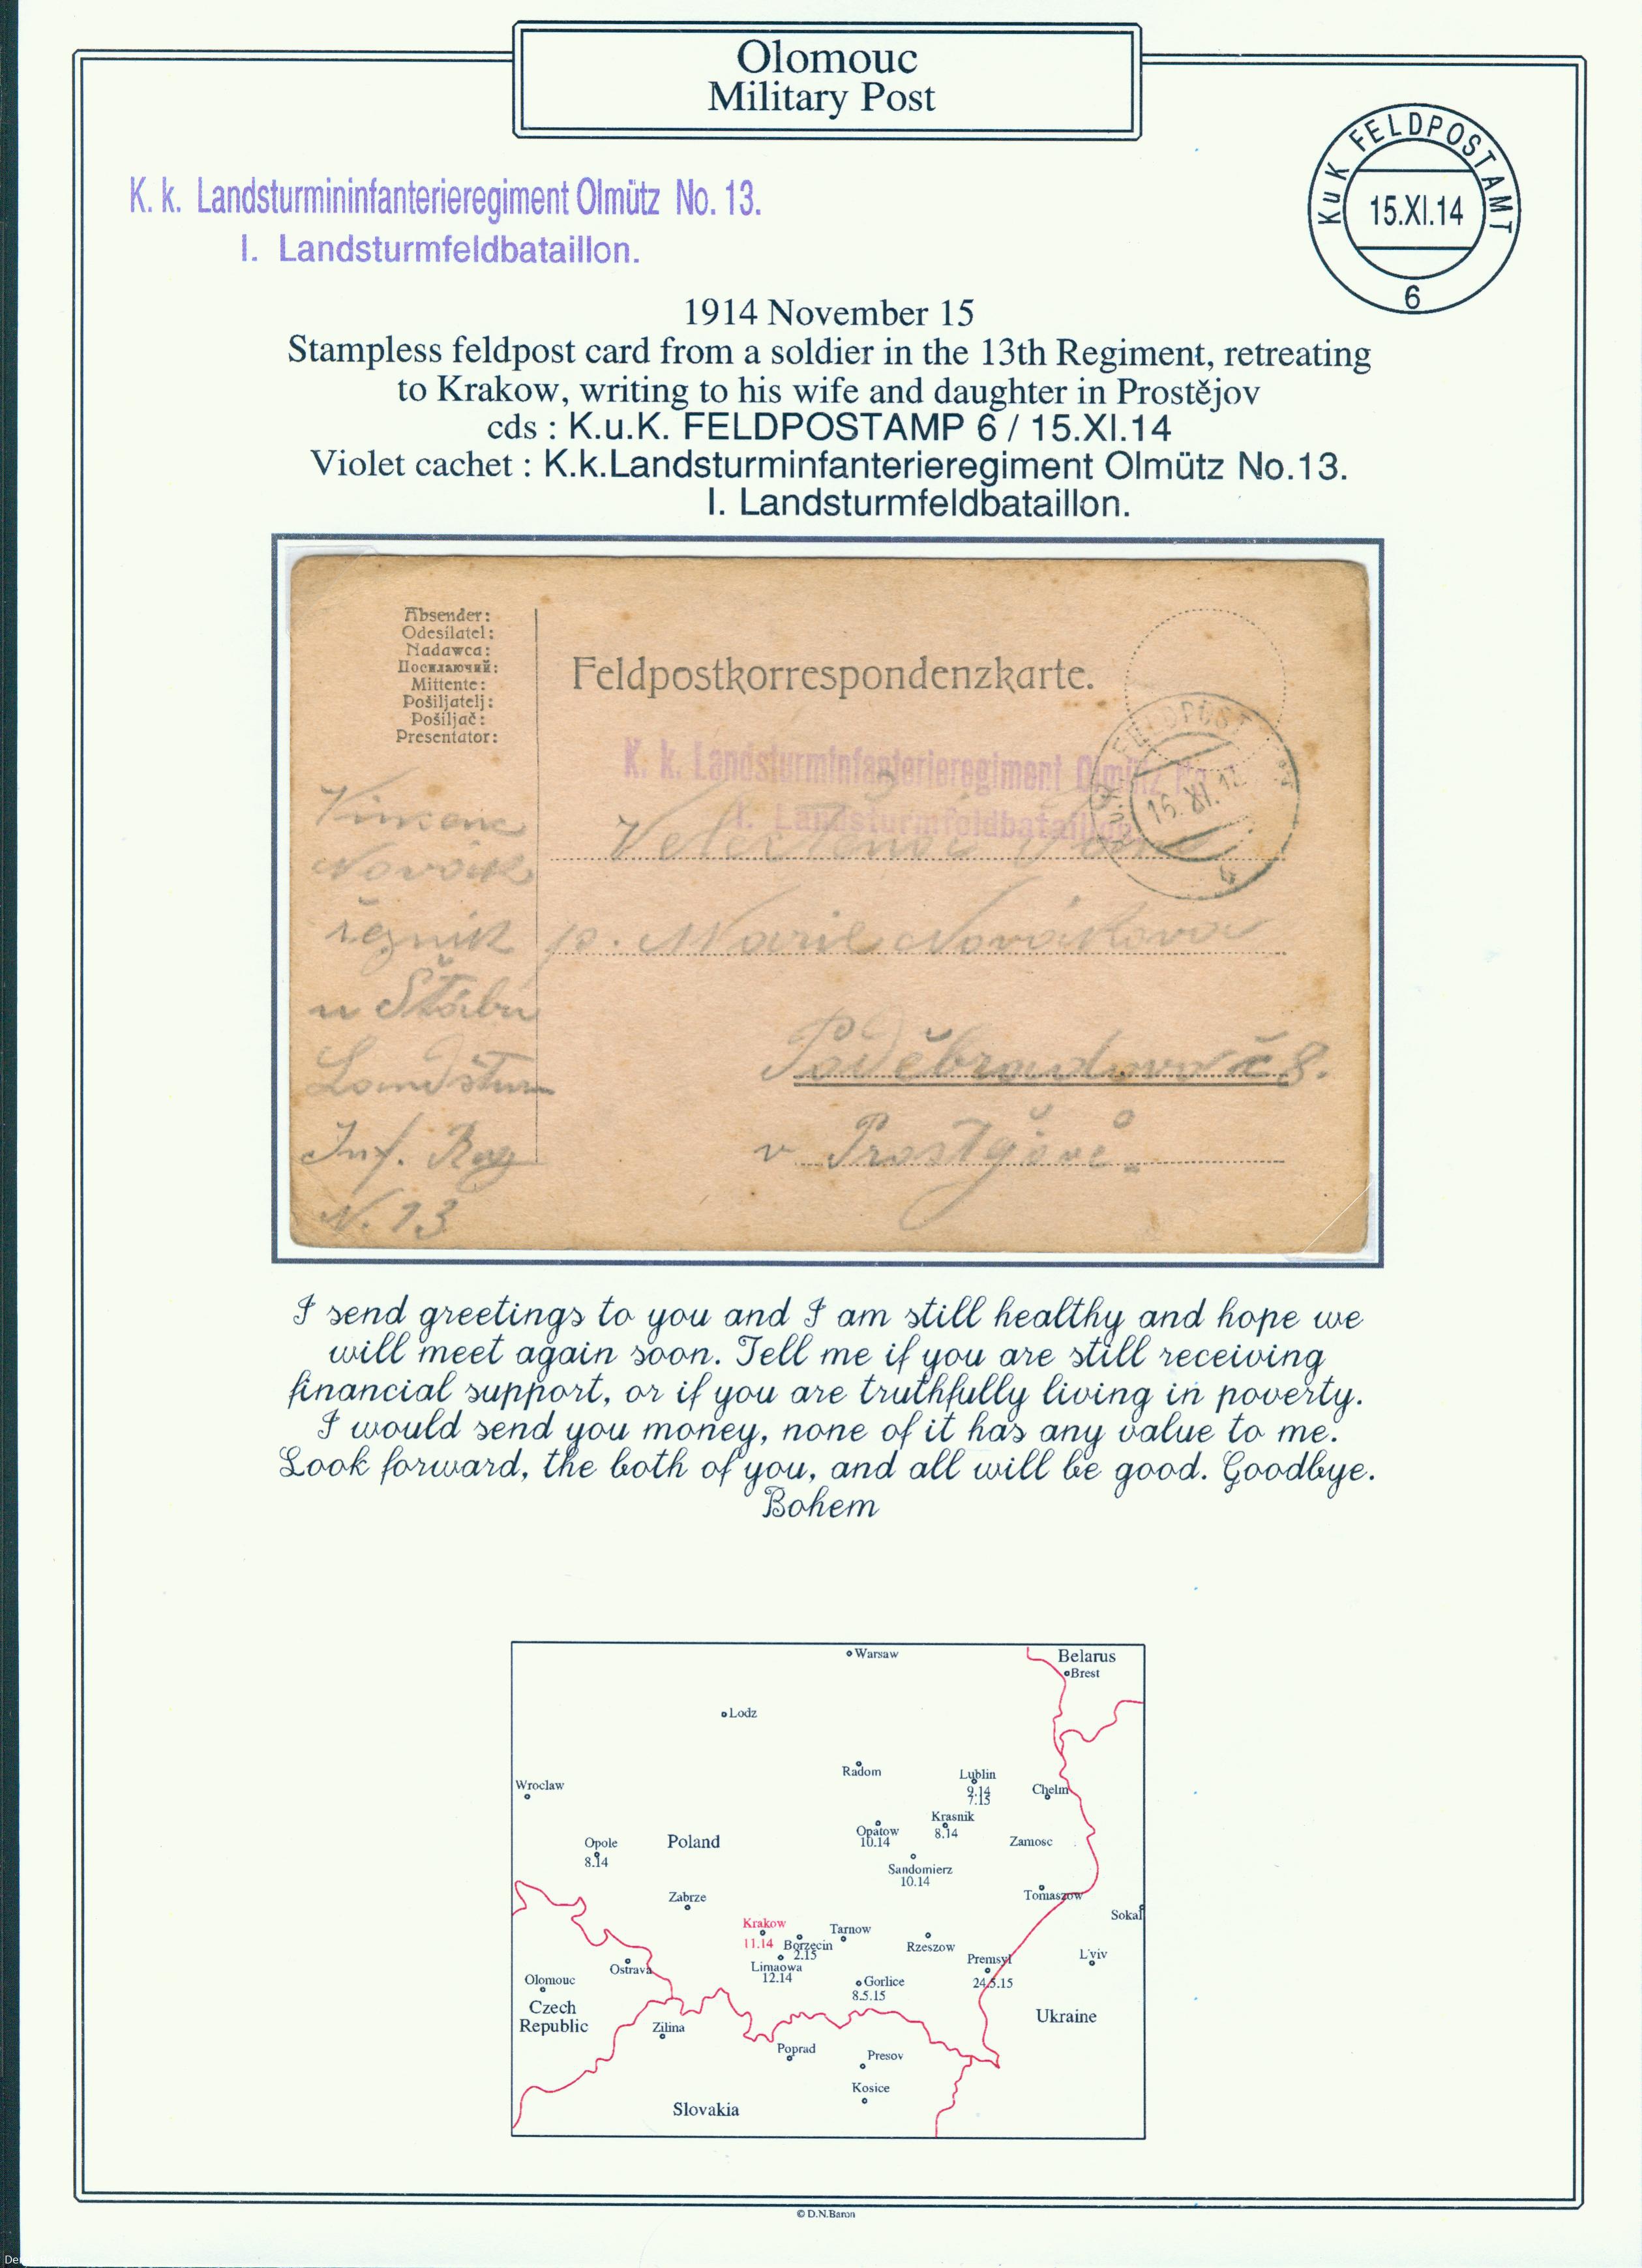 Olomouc
Military Post
K. k. Landsturmininfanterieregiment Olmütz No. 13.
I. Landsturmfeldbataillon.
KuK FELDPOSTAMT
15.XI.14
6
1914 November 15
Stampless feldpost card from a soldier in the 13th Regiment, retreating
to Krakow, writing to his wife and daughter in Prostějov
cds : K.u.K. FELDPOSTAMP 6 / 15.XI.14
Violet cachet : K.k.Landsturminfanterieregiment Olmütz No.13.
I. Landsturmfeldbataillon.
Absender:
Odesílatel:
Nadawca:
Посилаючий:
Mittente:
Pošiljatelj:
Pošiljač:
Presentator:
Feldpostkorrespondenzkarte.
K. k. Landsturminfanterieregiment Olmütz No.
I. Landsturmfeldbataillon
FELDPOST
15.XI.14
Novák
řezník
u Štábu
Landštur
Inf. Reg
N. 13
p. Marie Nováklova
Poděbradova č 8.
v Prostějově
I send greetings to you and I am still healthy and hope we
will meet again soon. Tell me if you are still receiving
financial support, or if you are truthfully living in poverty.
I would send you money, none of it has any value to me.
Look forward, the both of you, and all will be good. Goodbye.
Bohem
Warsaw
Belarus
Brest
Lodz
Radom
Lublin
9.14
7.15
Chelm
Wroclaw
Krasnik
8.14
Opatow
10.14
Opole
8.14
Poland
Zamosc
Sandomierz
10.14
Zabrze
Tomaszow
Sokal
Krakow
11.14
Borzecin
2.15
Tarnow
Rzeszow
Premsyl
24.5.15
L'viv
Limaowa
12.14
Ostrava
Gorlice
8.5.15
Olomouc
Czech
Republic
Ukraine
Zilina
Poprad
Presov
Kosice
Slovakia
© D.N.Baron
De